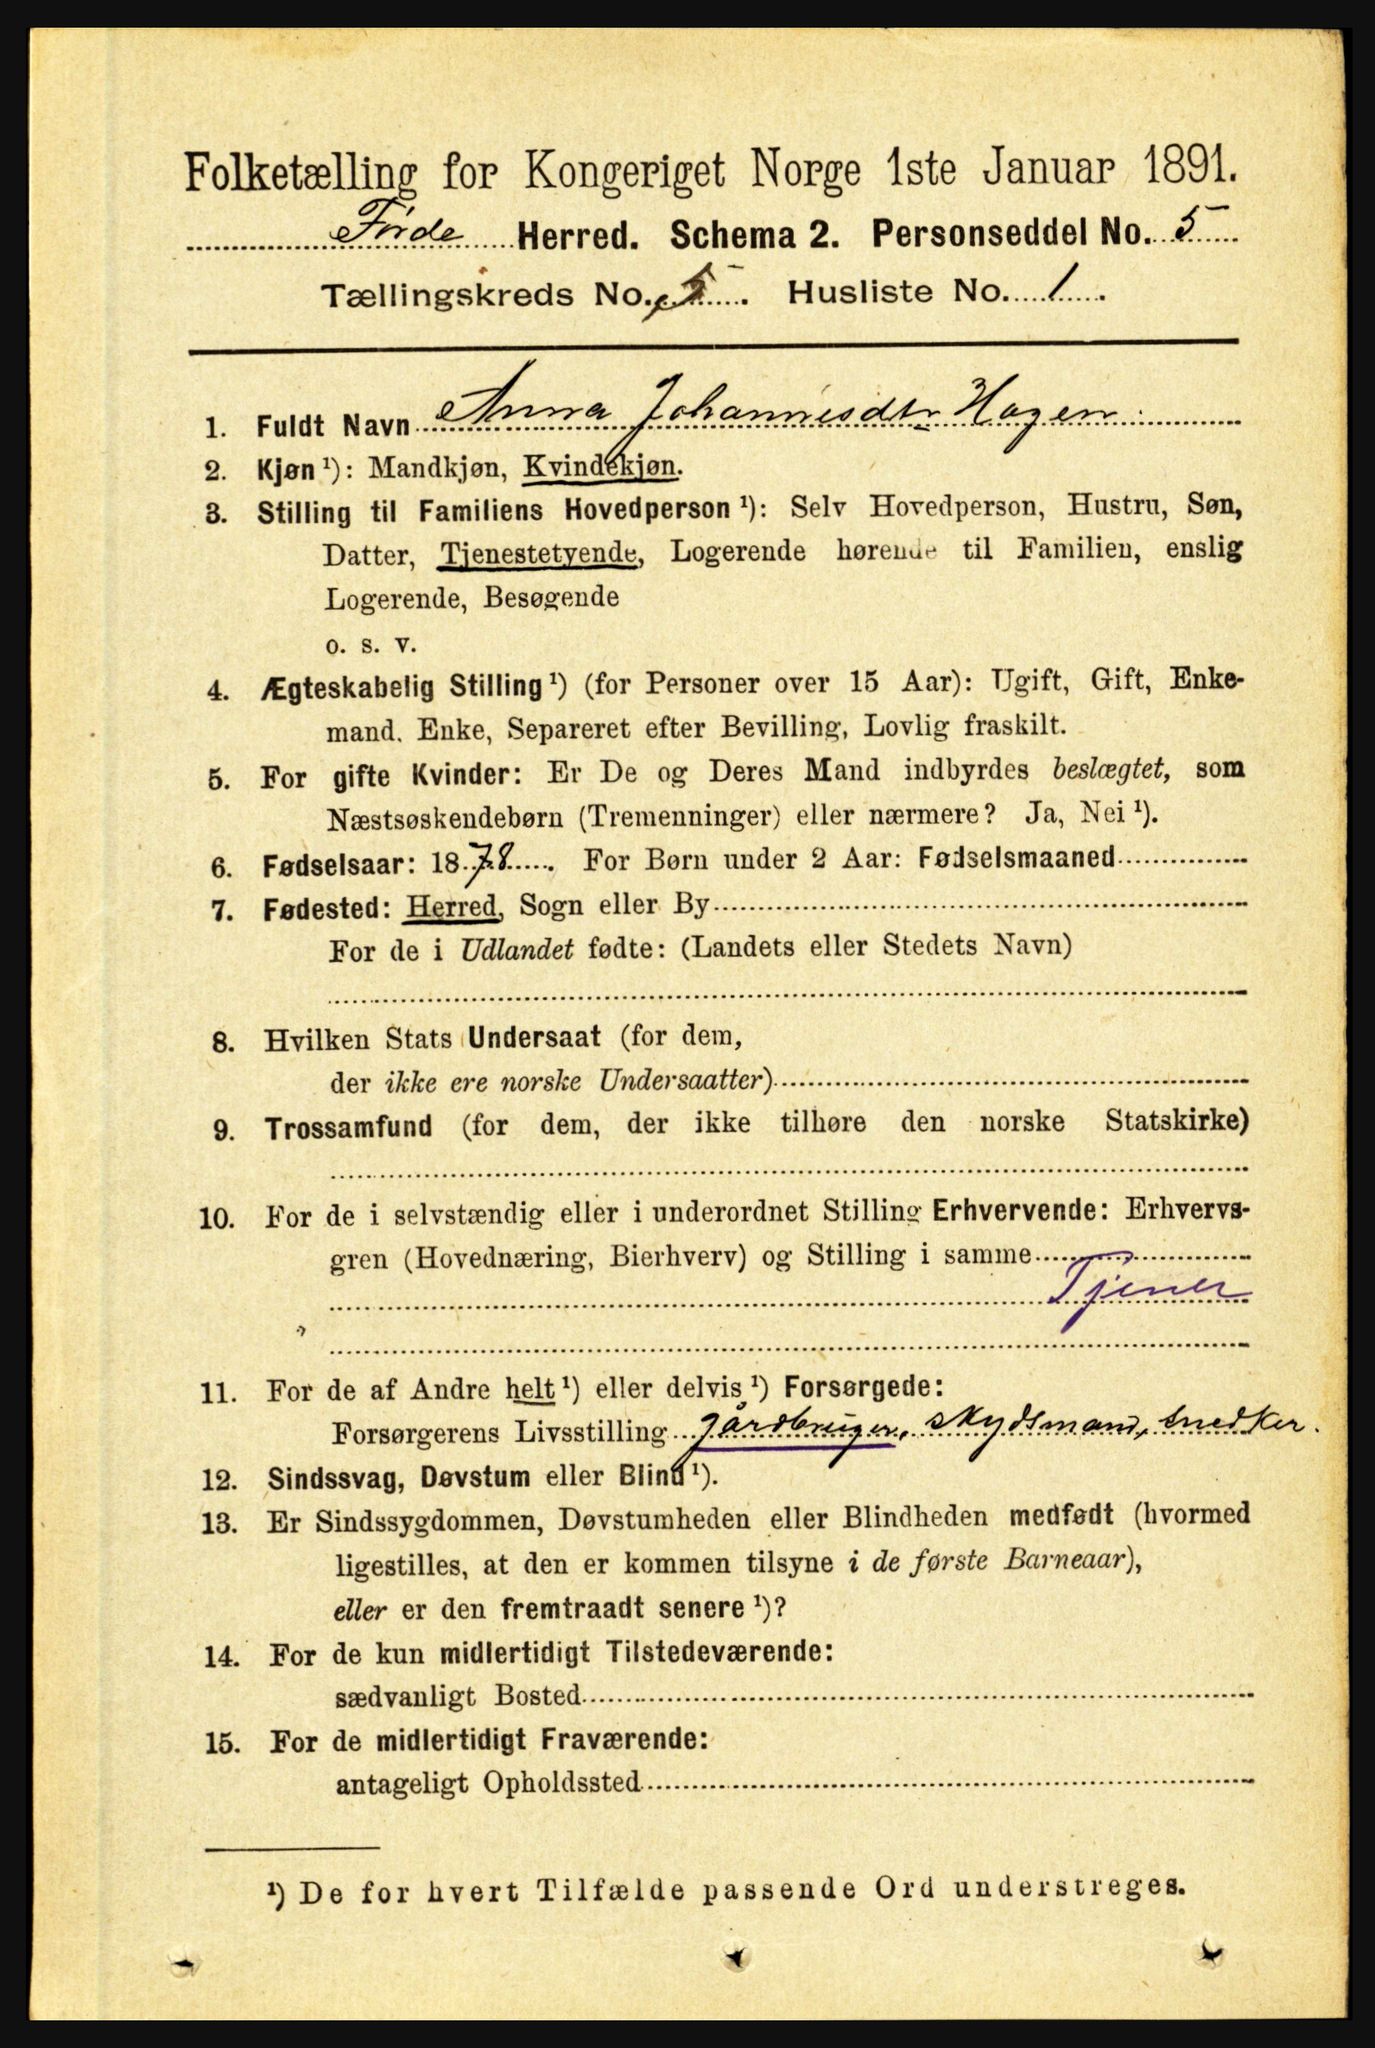 Folketælling for Kongeriget Norge 1ste Januar 1891.
Förde Herred. Schema 2. Personseddel No. 5
Tællingskreds No. 5. Husliste No. 1.
1. Fuldt Navn Anna Johannesdtr Hagen.
2. Kjøn ¹): Mandkjøn, Kvindekjøn.
3. Stilling til Familiens Hovedperson ¹): Selv Hovedperson, Hustru, Søn,
Datter, Tjenestetyende, Logerende hørende til Familien, enslig
Logerende, Besøgende
o. s. v.
4. Ægteskabelig Stilling ¹) (for Personer over 15 Aar): Ugift, Gift, Enke-
mand. Enke, Separeret efter Bevilling, Lovlig fraskilt.
5. For gifte Kvinder: Er De og Deres Mand indbyrdes beslægtet, som
Næstsøskendebørn (Tremenninger) eller nærmere? Ja, Nei ¹).
6. Fødselsaar: 1878. For Børn under 2 Aar: Fødselsmaaned
7. Fødested: Herred, Sogn eller By
For de i Udlandet fødte: (Landets eller Stedets Navn)
8. Hvilken Stats Undersaat (for dem,
der ikke ere norske Undersaatter)
9. Trossamfund (for dem, der ikke tilhøre den norske Statskirke)
10. For de i selvstændig eller i underordnet Stilling Erhvervende: Erhvervs-
gren (Hovednæring, Bierhverv) og Stilling i samme
Tjener
11. For de af Andre helt ¹) eller delvis ¹) Forsørgede:
Forsørgerens Livsstilling gårdbruger, skydsmand, snedker.
12. Sindssvag, Døvstum eller Blind ¹).
13. Er Sindssygdommen, Døvstumheden eller Blindheden medfødt (hvormed
ligestilles, at den er kommen tilsyne i de første Barneaar),
eller er den fremtraadt senere ¹)?
14. For de kun midlertidigt Tilstedeværende:
sædvanligt Bosted
15. For de midlertidigt Fraværende:
antageligt Opholdssted
¹) De for hvert Tilfælde passende Ord understreges.